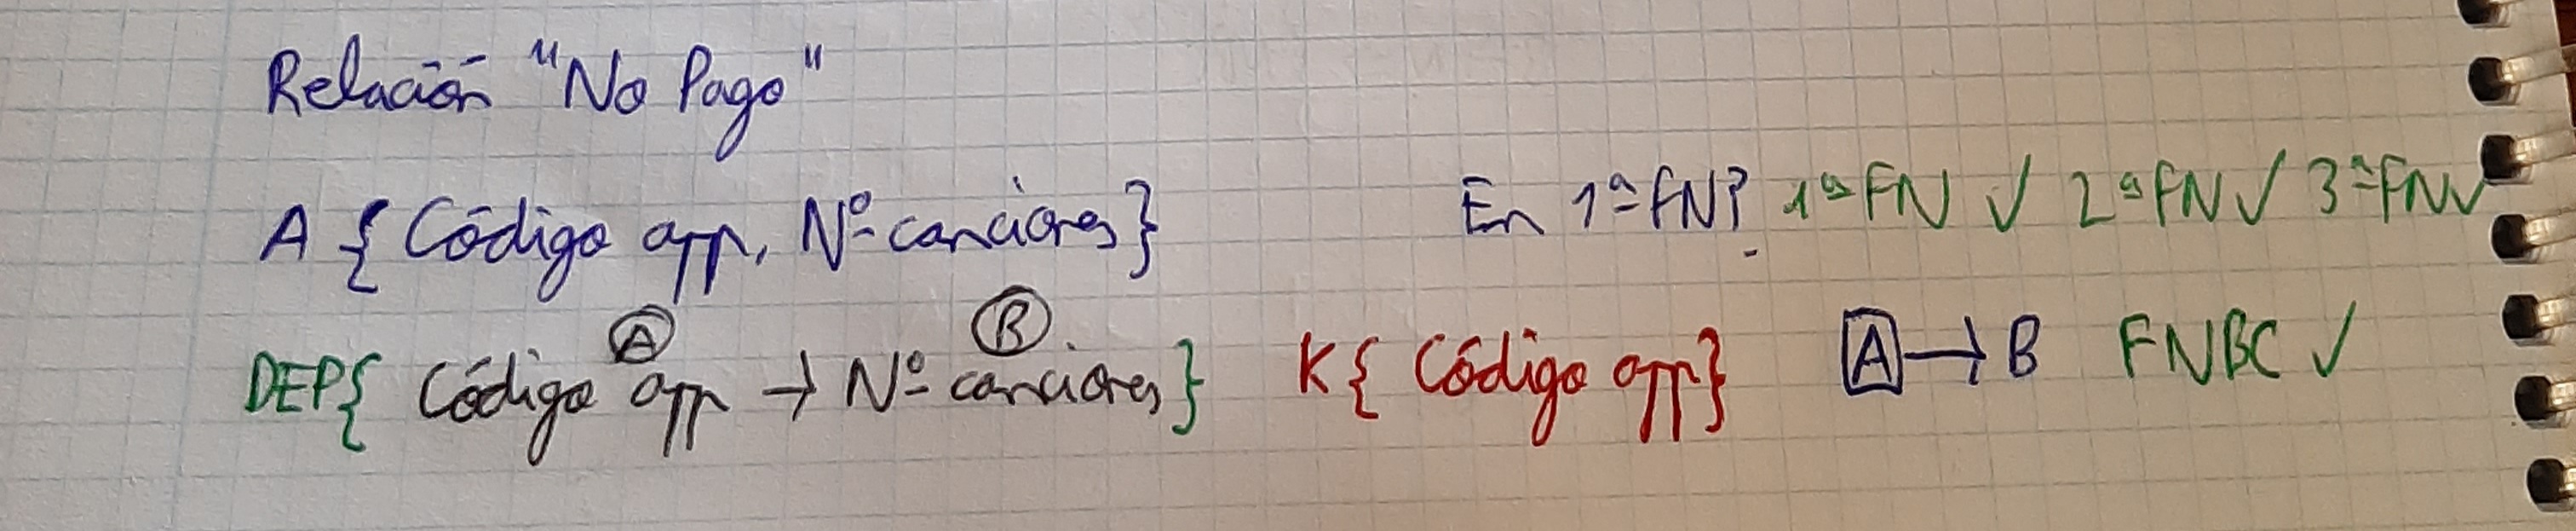 Relación "No Pago"
A { Código app, Nº canciones} En 1ª FN? 1ª FN ✓ 2ª FN ✓ 3ª FN ✓
A B
DEP{ Código app → Nº canciones} K{ Código app} A → B FNBC ✓